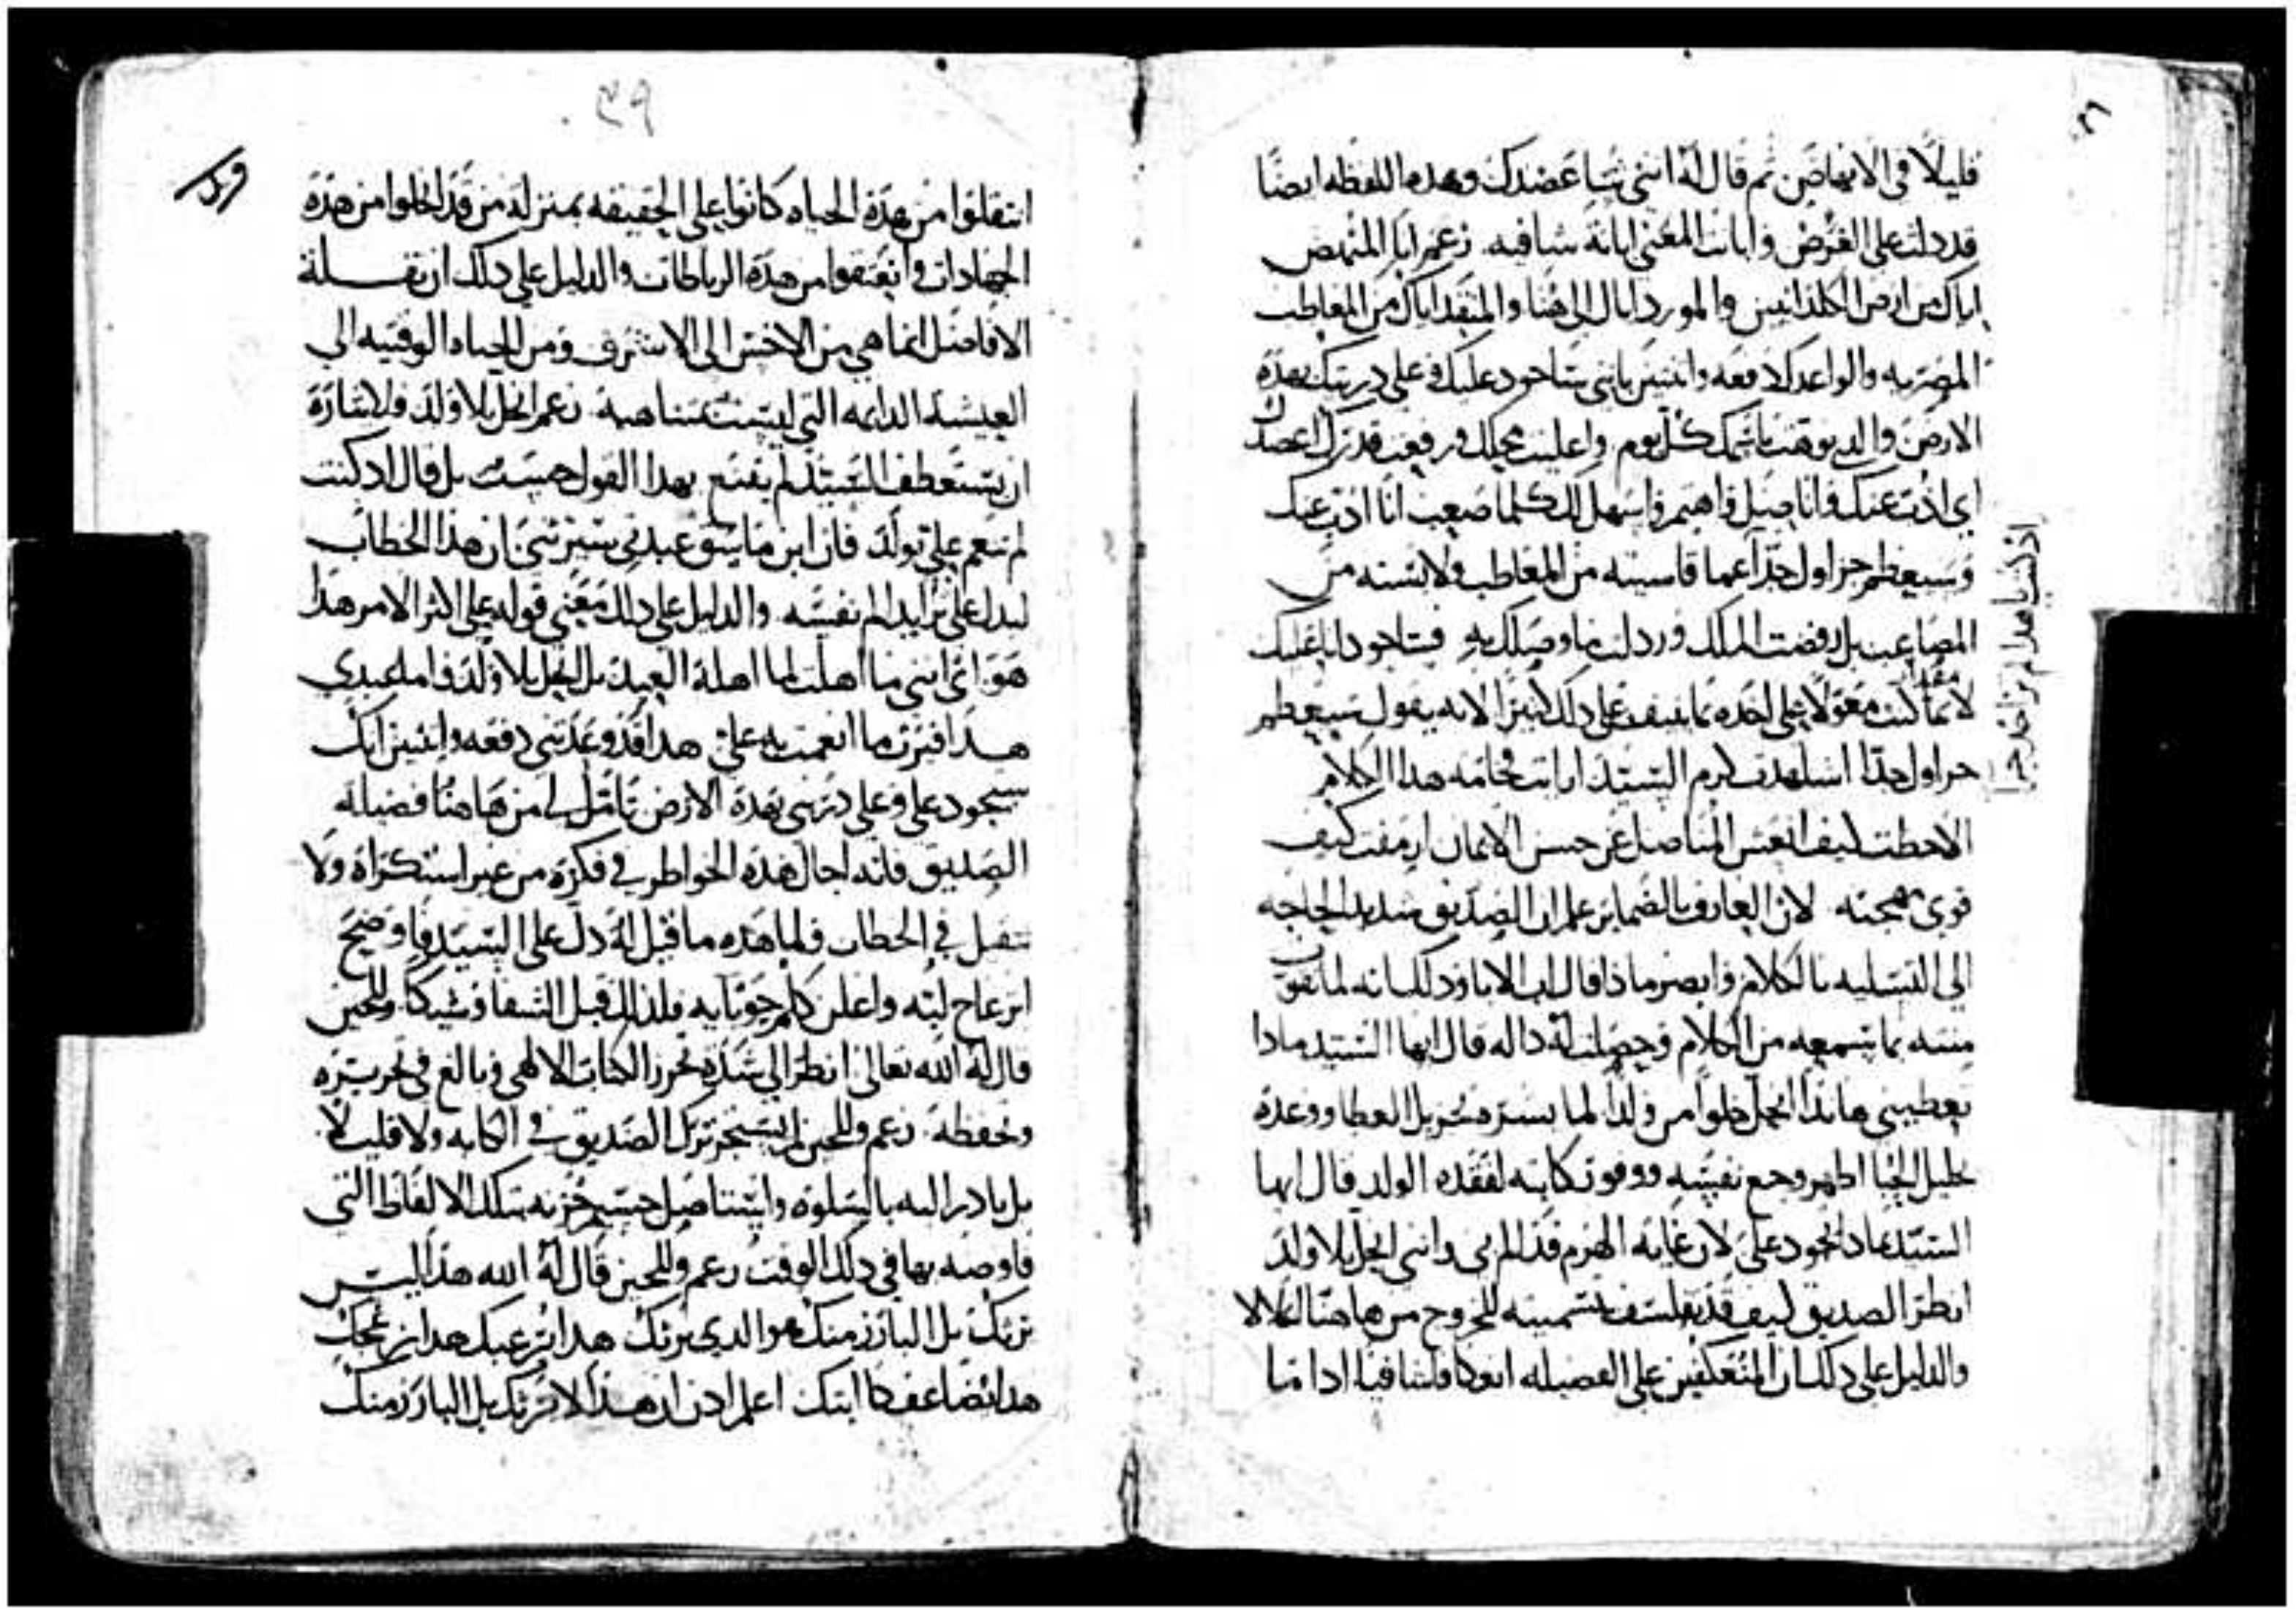 قليلا في الانهاض ثم قال له انني شيا عضدك وهده اللفظه ايضا
قد دلت على الغرض وابانت المعني ابانة شافيه زعم انا المنهض
اياك من ارض الكلدانيين والمورد اياك الى هنا والمنقد اياك من المعاطب
المصريه والواعدك دفعه واثنين بانني ساجود عليك وعلى دريتك بهذه
الارض
اي ادب عنك واناضل واهتم واسهل لك كلما صعب انا ادب عنك
وسيعظم جزاوك جدا عما قاسيته من المعاطب ولابسته من
المصاعب بل رفضت الملك وردلت ما وصلك به فساجود انا عليك
لا بما كنت معولا على اخده بما ينيف على دلك كثيرا لانه يقول سيعظم
جزاوك جدا اشاهدت كرم السيد ارايت فخامه هدا الكلام
الاحظت كيف انعش المناضل عن حسن الايمان ارمقت كيف
قوى مهجته لان العارف بالضماير علم ان الصديق شديد الحاجه
الى التسليه بالكلام وابصر ماذا قال اب الابا ودلك انه لما تقوت
منته بما يسمعه من الكلام وحصلت له داله قال ايها السيد مادا
تعطيني هاندا انحل خلوا من ولد لما بشره بجزيل العطا ووعده
بجليل الحبا اظهر وجع نفسه ووفور كابته لفقده الولد قال ايها
السيد مادا تجود علي لان غايه الهرم قد الم بي وانني انحل بلا ولد
انظر الصديق كيف قد تفلسف بتسميته للخروج من هاهنا انحلالا
والدليل على دلك ان المنعكفين على الفضيله
اذ كنت يا هدا لم تر اخد جزا
٣٩
انتقلوا من هذه الحياه كانوا على الحقيقه بمنزله من قد انحلوا من هذه
الجهادات وانعتقوا من هذه الرباطات والدليل على دلك ان نقـــلة
الافاضل انما هي من الاخس الى الاشرف ومن الحياه الوقتيه الي
العيشه الدايمه التي ليست متناهية زعم انحل بلا ولد فلاشارة
ان يستعطف السيد لم يقنع بهدا القول حسب بل قال اد كنت
لم تنعم علي بولد فان ابن ماسق عبدي سيرثني ان هدا الخطاب
ليدل على تزايد الم نفسه والدليل على دلك معني قوله على اكثر الامر هدا
هو اي انني ما اهلت لما اهله العبيد بل انحل بلا ولد فاما عبدي
هذا فيرث ما انعمت به علي هدا قد وعدتني دفعه واثنين انك
سجود علي وعلي دريتي بهده الارض تامل لي من هاهنا فضيله
الصديق فانه اجال هذه الخواطر في فكره من غير استكراه ولا
تثقيل في الخطاب
انزعاج لبه واعلن كلم جوانيه فلذلك قبل الشفا وشيكا وللحين
قال له الله تعالى انظر الي شدة تحرز الكتاب الالهي
وتحفظه زعم وللحين لم يستجز ترك الصديق في الكابه ولا قليلا
بل بادر اليه بالسلوه واستاصل جسيم حزنه بتلك الالفاظ التي
فاوضه بها في دلك الوقت زعم وللحين قال له الله هذا ليس
يرثك بل البارز منك هو الدي يرثك هدا
اعلم ادن ان هذا لا يرثك بل البارز منك